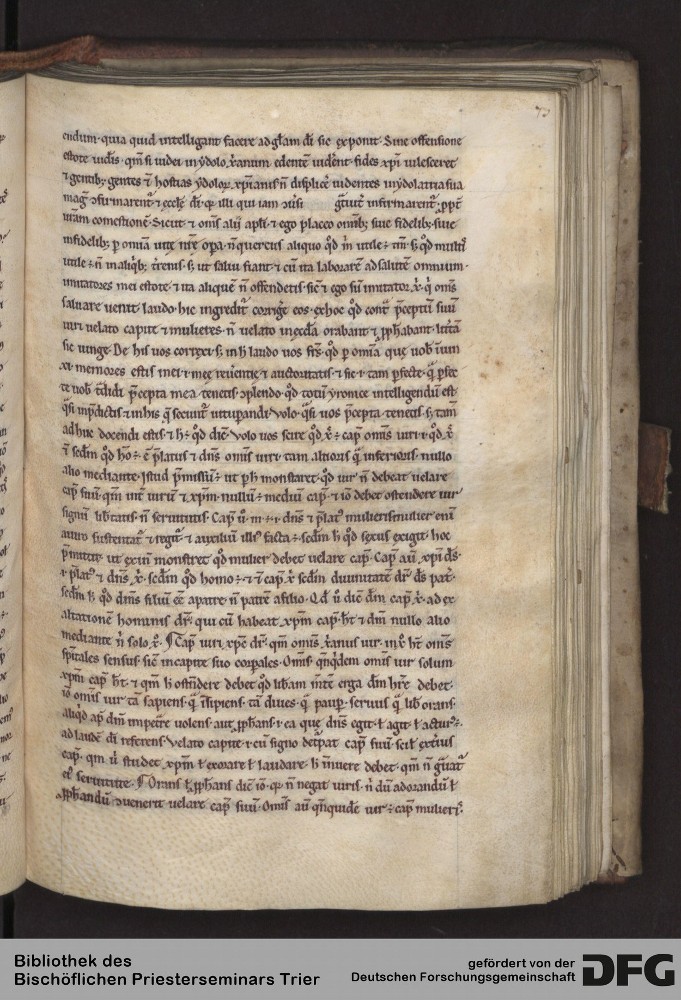 73
endum. quia quid intelligant facere ad gl̄am dī sic exponit. Sine offensione
estote iudīs. qm̄ si uideri in ydolo x̄anum edentē uidēnt fides xp̄i uilesceret
⁊ gentib; gentes ī hostias ydolor̨ xp̄ianis n̄ displicē uidentes in ydolatria sua
mag̃ ꝯfirmarent̃ ⁊ eccłę dī. qr illi qui iam infirmarent̃. ꝓpt̃
uram comestionē. Sicut ⁊ om̄s alij apłi ⁊ ego placeo om̄ib; siue fidelib; siue
infidelib; ꝑ omīa uitę nr̄e opa. n̄ querens aliquo qd̄ m̄ utile ÷ tm̄. s; qd̄ multis
utile ÷ n̄ in aliq̄b; s; ut salui fiant ⁊ cū ita laborarē ad salutē omnium.
imitatores mei estote. ⁊ ita aliquē n̄ offendetis. sic̄ ⁊ ego sū imitator x̄. q̄ om̄s
saluare uenit laudo. hic ingredit̃ corrig̃e eos. exhoc qd̄ cont̃ p̄ceptū suū
uiri uelato capite ⁊ mulieres n̄ uelato in eccła orabant ⁊ ꝓph̄abant. litt̃a
sic iunge. De his uos corr̨exi. s; in h̄ laudo uos fr̄s. qd̄ ꝑ omīa que uob̄ iūm
xi memores estis mei ⁊ meę reuerītię ⁊ auctoritatis ⁊ sic ⁊ tam ꝑfecte. q̄ ꝑfec
te uob̄ t̃didi p̄cepta mea tenetis. qd̄ totū yronice intelligendū est
q̄si inp̄dictis ⁊ in his q̄ secunt̃ uitupandi. Volo. q̄si uos p̄cepta tenetis. s; tam̄
adhuc docendi estis ⁊ h̄ ÷ qd̄ dic̄. Volo uos scire qd̄ x̄ ÷ cap̄ om̄is uiri. qd̄ x̄
ī sedm̄ qd̄ hō ÷ ē p̄latus ⁊ dn̄s om̄is uiri. tam altioris q̄ inferioris. nullo
alio mediante. Istud p̄missū ÷ ut ꝑ h̄ monstraret. qd̄ uir n̄ debeat uelare
cap̄ suū. qm̄ int̃ uirū ⁊ xp̄m. nullū ÷ mediū cap̄. ⁊ iō debet ostendere uir
signū libtatis. n̄ seruitutis. Cap̄ ū m̄ ÷ uir. dn̄s ⁊ p̄lat̃ mulieris. mulier enī
a uiro sustentat̃ ⁊ regit̃ ⁊ auxiliū illi̾ facta ÷ sedm̄ h̄ qd̄ sexus exigit. hoc
p̄mittit. ut ex in̄ monstret qd̄ mulier debet uelare cap̄. Cap̄ aū xp̄i ds̄.
⁊ p̄lat̾ ⁊ dn̄s x̄. sedm̄ qd̄ homo ÷ ⁊ ÷ cap̄ x̄ sedm̄ diuinitatē dr̄ ds̄ pat̃.
sedm̄ h̄ qd̄ dm̄s filiū eē a patre. n̄ patrē a filio. Qd̄ ū dic̄ dm̄ cap̄ x̄. ad ex
altationē hominis dr̄. qui cū habeat xp̄m cap̄. h̄t ⁊ dm̄ nullo alio
mediante n̄ solo x̄. ¶ Cap̄ uiri xp̄c dr̄. qm̄ om̄is x̄anus uir. in x̄ h̄t om̄s
spitales sensus. sic̄ in capite suo corpales. Om̄is. q̄nq̄dem om̄is uir solum
xp̄m cap̄ h̄t. ⁊ qm̄ h̄ ostn̄dere debet. qd̄ lib̄am mt̃e erga dm̄ hr̄e debet.
iō om̄is uir tā sapiens. q̄ insipiens tā diues. q̄ paup. seruus q̄ lib̄. orans.
aliq̄d ap̄ dm̄ impet̃re uolens. aut ꝓph̄ans. ⁊ ea que dn̄s egit. ł agit ł actur̾ ÷.
ad laudē dī referens. Velato capite. ⁊ cū signo det̃pat cap̄ suū. scił ext̃ius
cap̄. qm̄ ū studet xp̄m ł exorare ł laudare. h̄ innuere debet. qm̄ n̄ g̃uat̃
ei̾ seruitute. ¶ Orans ł ꝓph̄ans dic̄ iō. qr n̄ negat uiris. n̄ dū adorandū ł
ꝓph̄andū ꝯuenerit uelare cap̄ suū. Om̄is aū q̄nquidē uir ÷ cap̄ mulieris.
Bibliothek des
Bischöflichen Priesterseminars Trier
gefördert von der
Deutschen Forschungsgemeinschaft
DFG